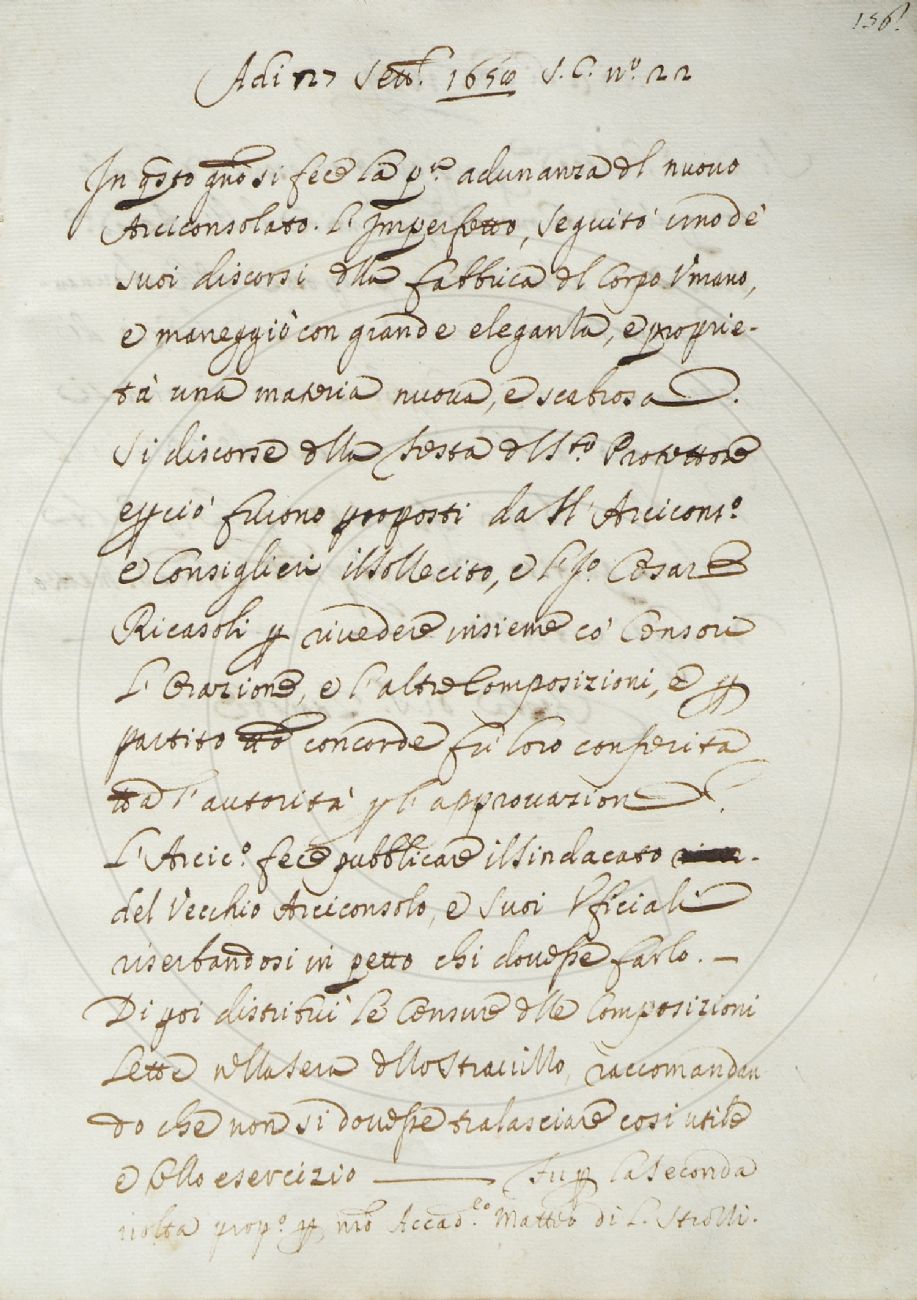 156.
Adi 27 Sett.e 1650 S. C. n.o 22
In qsto gno si fece la p.ra adunanza dl nuovo
Arciconsolato. L'Imperfetto, seguitò uno de'
suoi discorsi dlla fabbrica del Corpo Vmano,
e maneggiò con grande eleganza, e proprie-
tà una materia nuova, e scabrosa.
Si discorse dlla festa del S.to Protettore
e pciò furono proposti dall'Arcicons.o
e Consiglieri il Sollecito, e l' Cesare
Ricasoli p rivedere insieme co' Censori
L'Orazione, e l'altre Composizioni, e p
partito concorde fù loro conferita
l'autorità p l'approvazione.
L'Arcic.o fece pubblicare il Sindacato
del Vecchio Arciconsolo, e suoi Vficiali
riserbandosi in petto chi dovesse farlo. —
Di poi distribuì le Censure dlle Composizioni
Lette nlla sera dllo Stravizzo, raccomandan
do che non si dovesse tralasciare così utile
e bllo esercizio —— Fu p la seconda
volta prop.o p nro Accad.co Matteo di L. Strozzi.